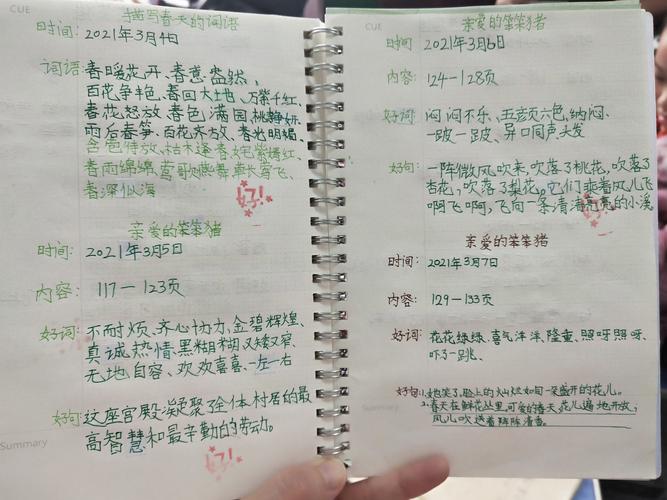 CUE
描写春天的词语
时间: 2021年3月4日
词语: 春暖花开、春意盎然、
百花争艳、春回大地、万紫千红、
春花怒放、春色满园、桃
雨后春笋、百花齐放、春光明媚、
含苞待放、枯木逢春、姹紫嫣红、
春雨绵绵、莺歌燕舞、草长莺飞、
春深似海
好!
亲爱的笨笨猪
时间: 2021年3月5日
内容: 117—123页
好词: 不耐烦、齐心协力、金碧辉煌、
真诚热情、黑糊糊、又矮又窄、
无地自容、欢欢喜喜、一左一右
好句: 这座宫殿凝聚全体村居的最
高智慧和最辛勤的劳动。
Summary
好!
CUE
亲爱的笨笨猪
时间: 2021年3月6日
内容: 124—128页
好词: 闷闷不乐、五颜六色、纳闷、
一跛一跛、异口同声、头发
好句: 一阵微风吹来,吹落了桃花,吹落了
杏花,吹落了梨花。它们乘着风儿飞
啊飞啊,飞向一条清清亮亮的小溪
好!
亲爱的笨笨猪
时间: 2021年3月7日
内容: 129—133页
好词: 花花绿绿、喜气洋洋、隆重、照呀照呀、
吓了一跳、
好句: 1、她笑了,脸上的灿烂如同一朵盛开的花儿。
2、春天在鲜花丛里,可爱的春天,花儿遍地开放,
风儿吹送着阵阵清香。
Summary